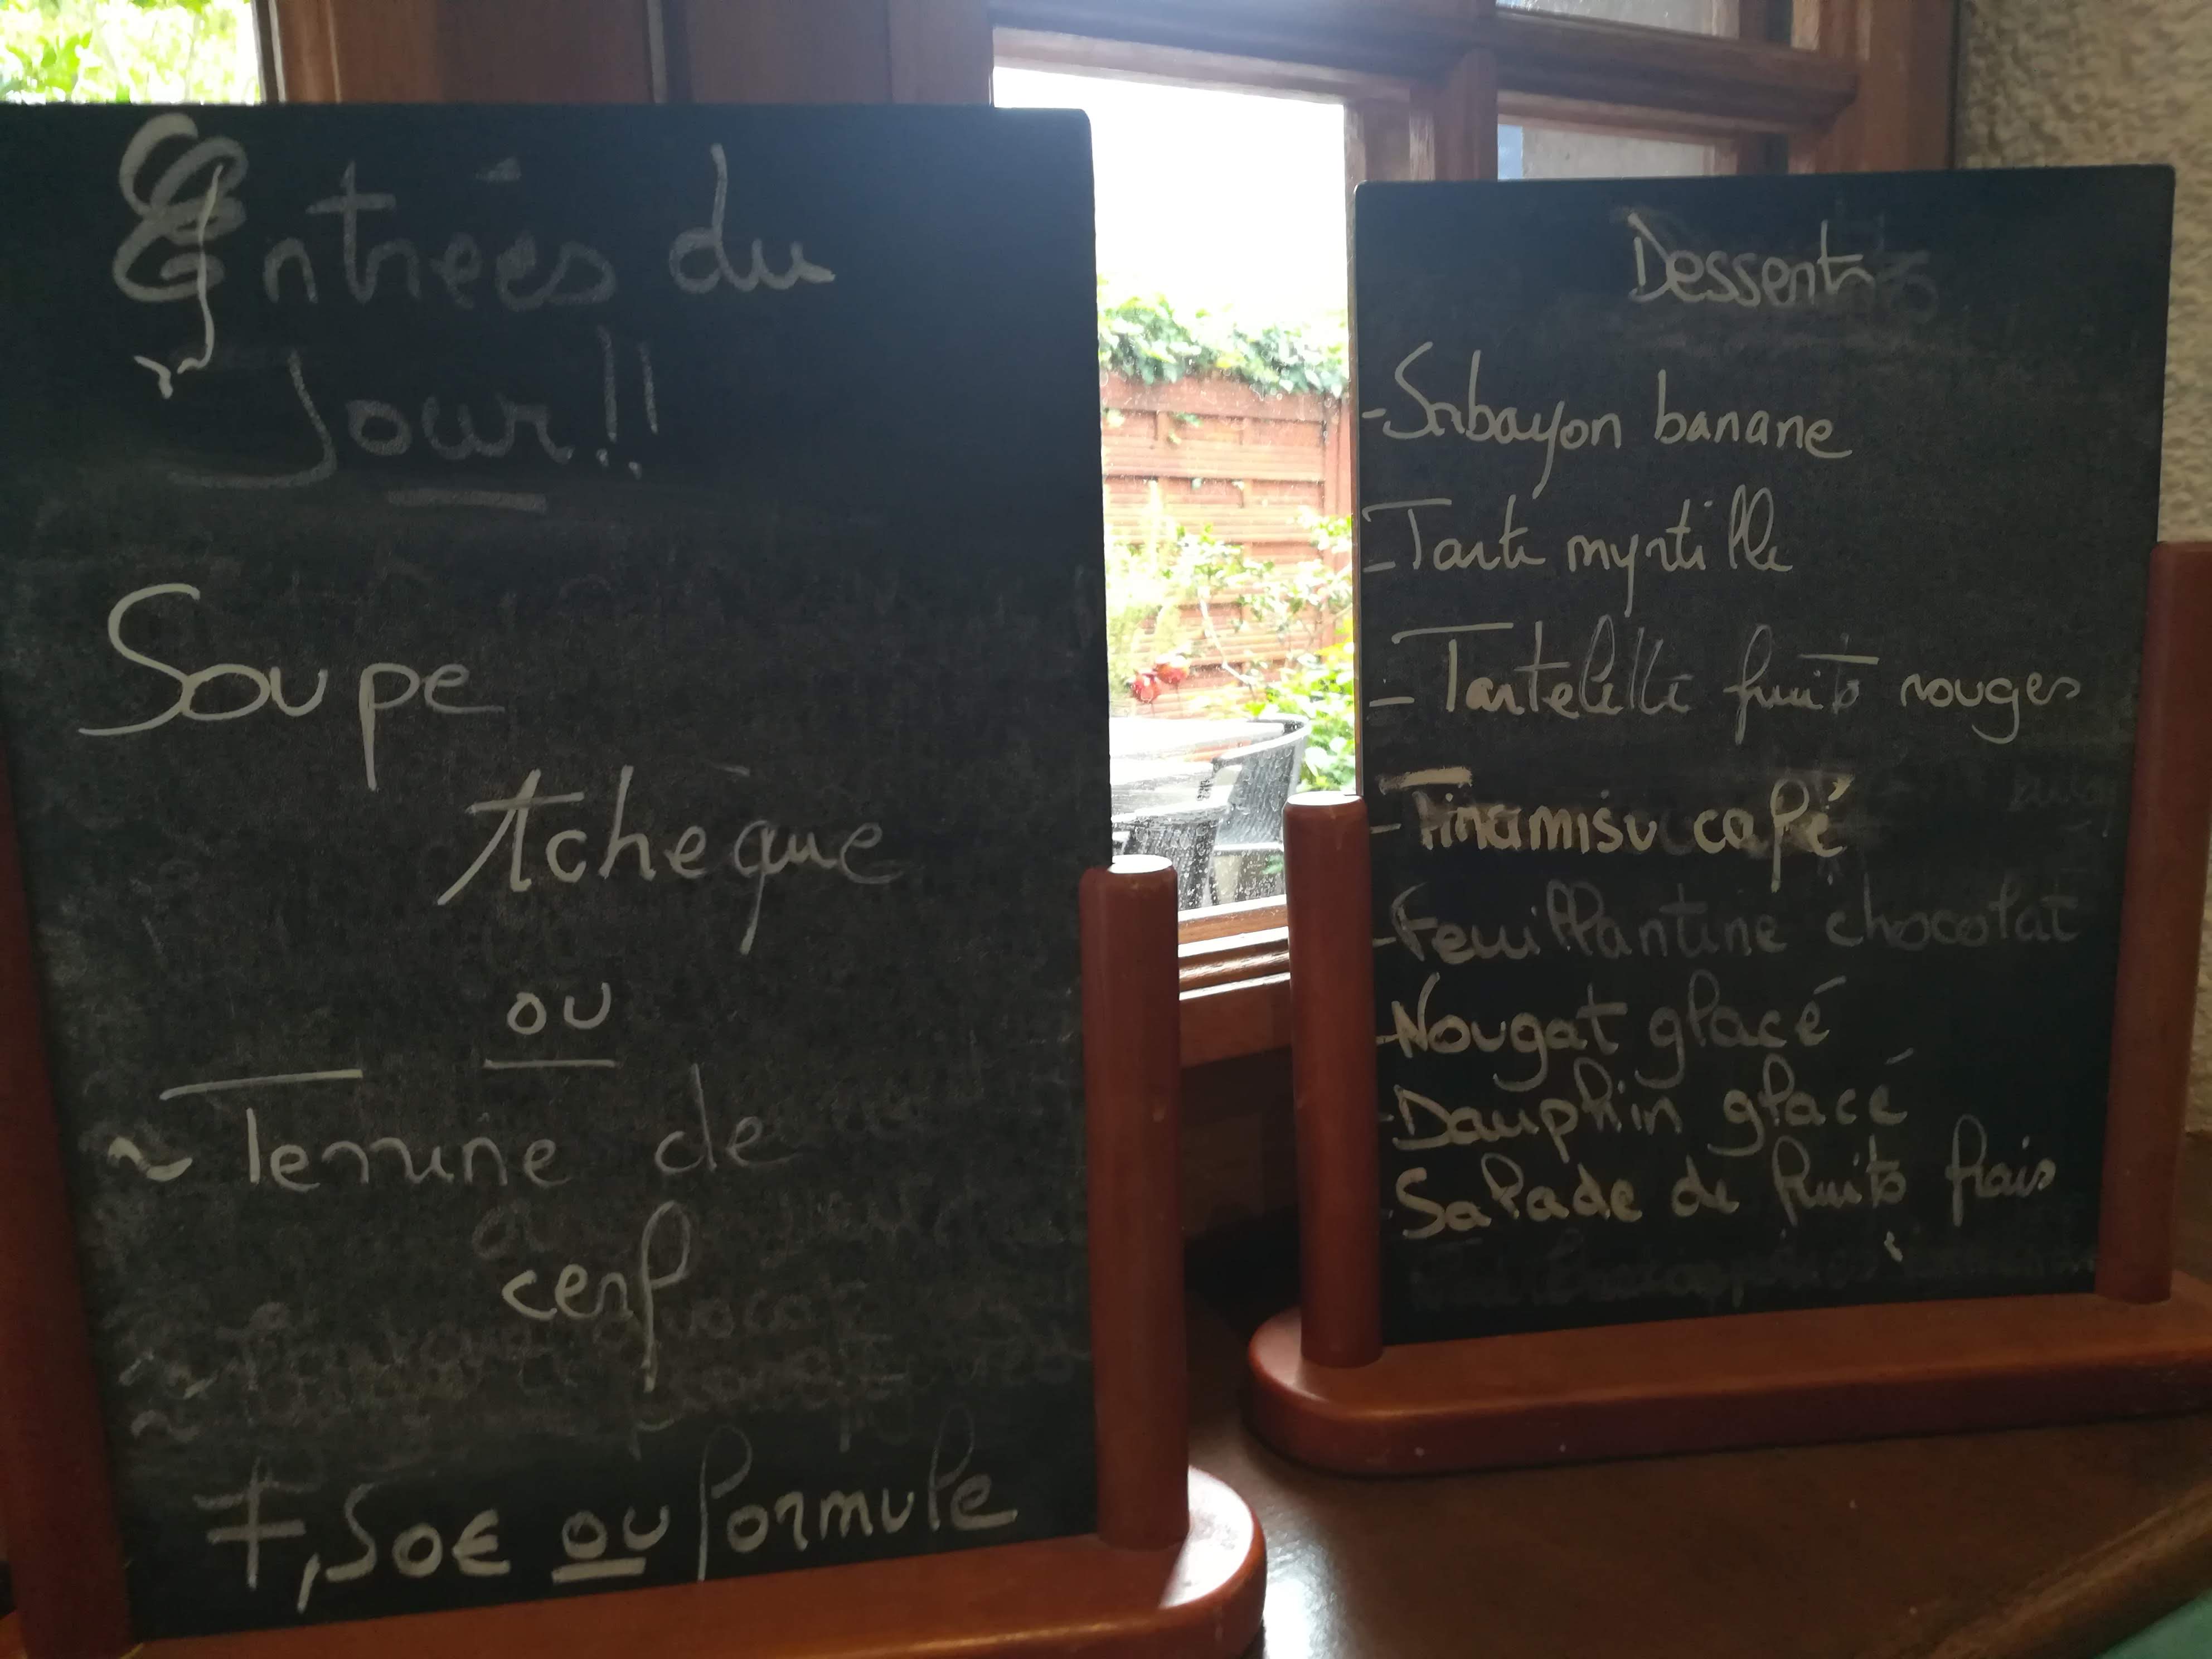 Entrées du
Jour!!
Soupe
tchèque
ou
~ Terrine de
cerf
7,50€ ou formule
Desserts
- Sabayon banane
- Tarte myrtille
- Tartelette fruits rouges
- Tiramisu café
- Feuillantine chocolat
- Nougat glacé
- Dauphin glacé
Salade de fruits frais